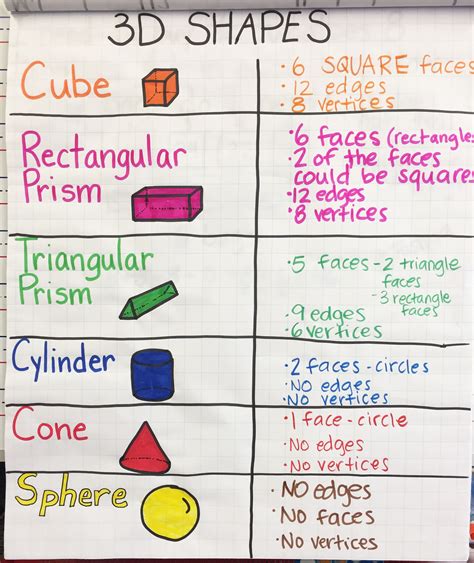 3D SHAPES
Cube
· 6 SQUARE faces
· 12 edges
· 8 vertices
Rectangular
Prism
· 6 faces (rectangles
· 2 of the faces
could be squares
· 12 edges
· 8 vertices
Triangular
Prism
· 5 faces - 2 triangle
faces
- 3 rectangle
faces
· 9 edges
· 6 vertices
Cylinder
· 2 faces - circles
· NO edges
· NO vertices
Cone
· 1 face - circle
· No edges
· No vertices
Sphere
· NO edges
· No faces
· No vertices